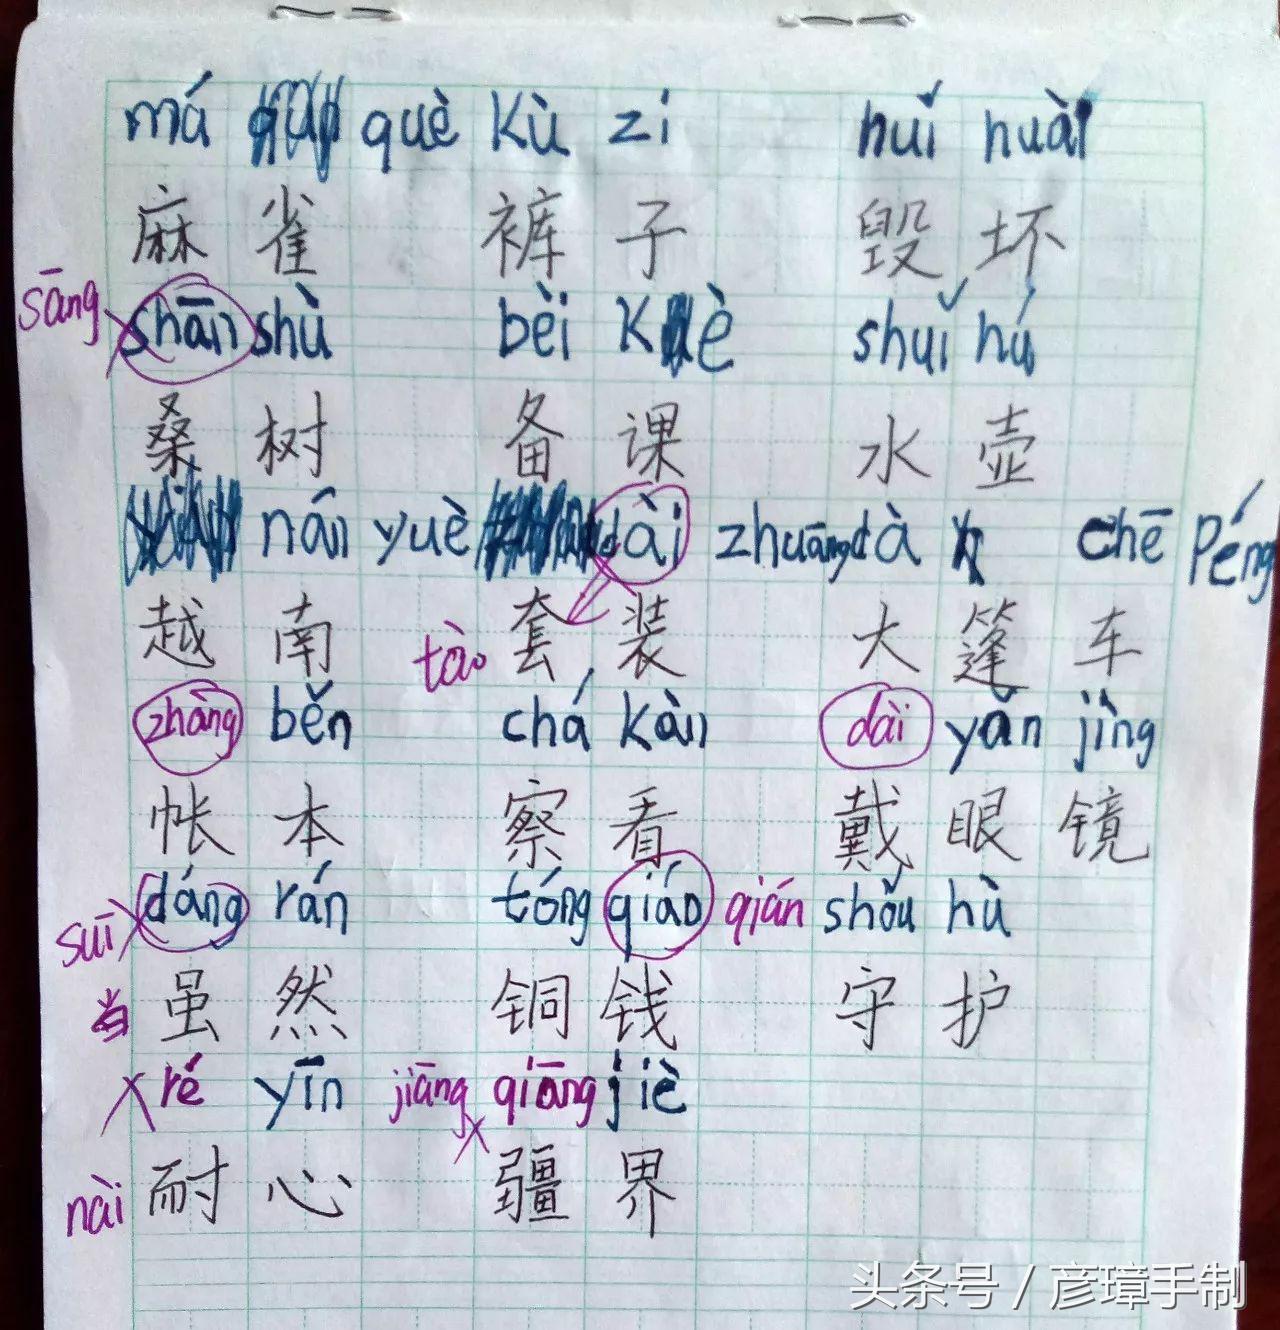 má què kù zi huǐ huài
麻雀 裤子 毁坏
sāng shān shù bèi kè shuǐ hú
桑树 备课 水壶
nán yuè dài zhuāng dà chē péng
越南 tào 套装 大篷车
zhàng běn chá kàn dài yǎn jìng
帐本 察看 戴眼镜
dáng rán tóng qiáo qián shǒu hù
suī
当 虽然 铜钱 守护
ré yīn jiāng qiāng jiè
nài 耐心 疆界
头条号 / 彦璋手制